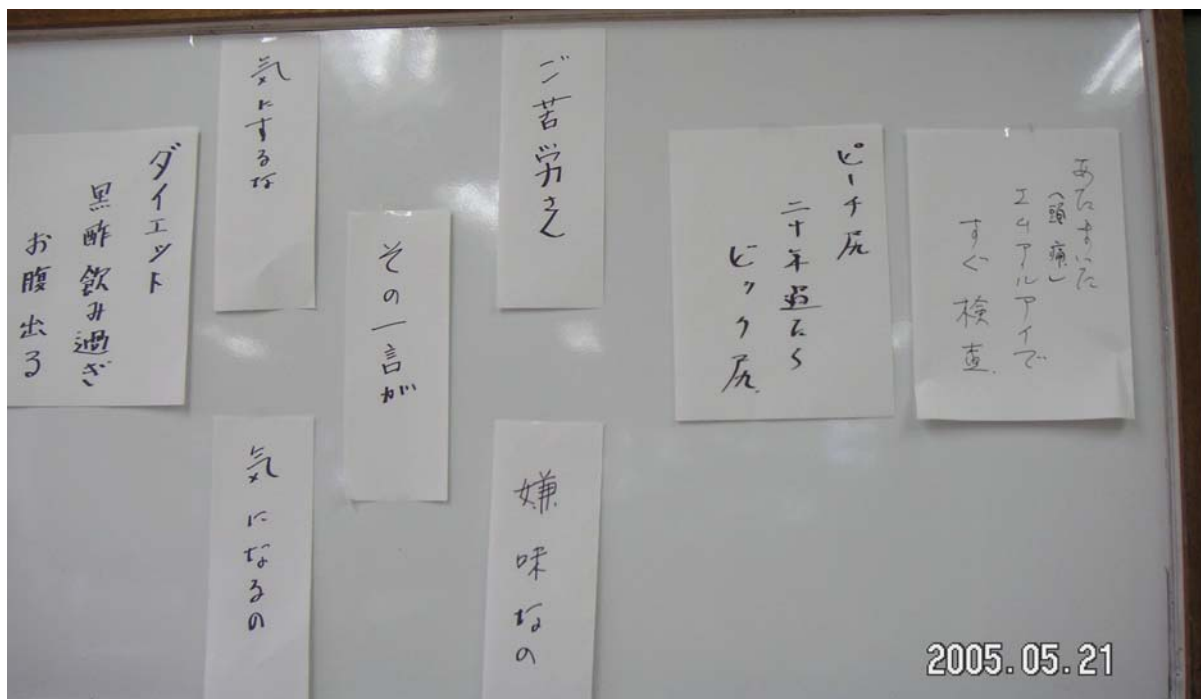 あたまいた
(頭痛)
エムアルアイで
すぐ検査
ピーチ尻
二十年過たら
ビック尻
ご苦労さん
嫌味なの
その一言が
気にするな
気になるの
ダイエット
黒酢飲み過ぎ
お腹出る
2005.05.21